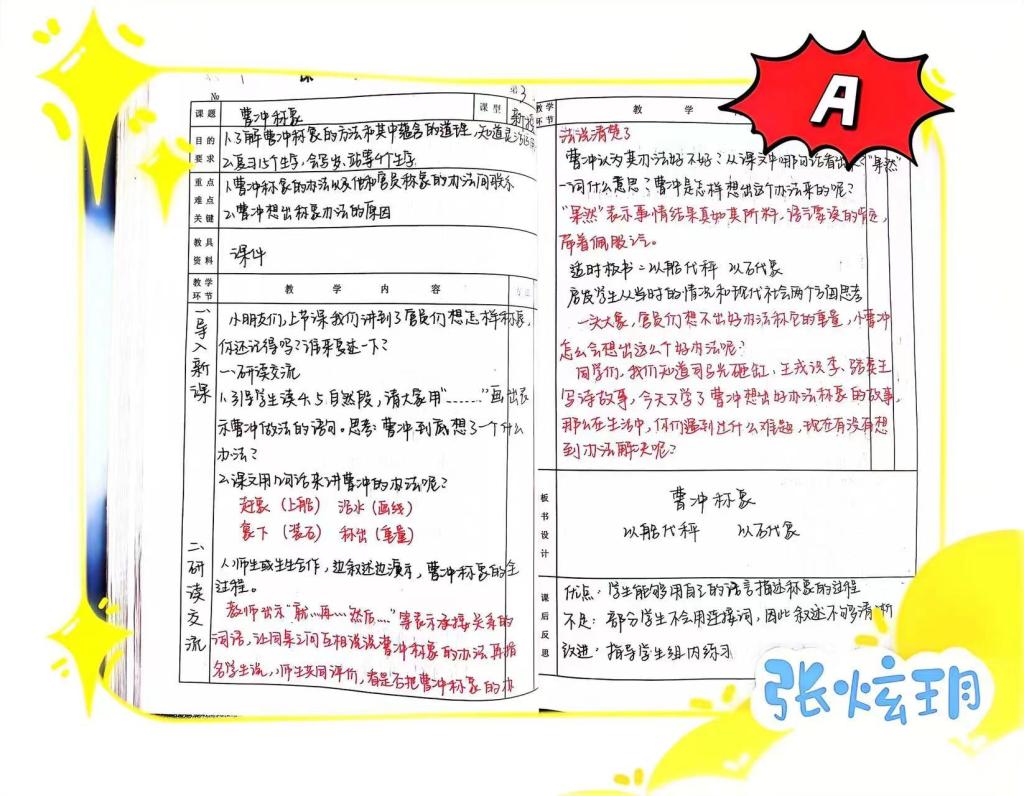 No
第 3
课题 曹冲称象 课型
目的要求 1.了解曹冲称象的方法和其中蕴含的道理,知道
2.复习15个生字,会写出、站等个生字
重点难点关键 1.曹冲称象的办法以及他和官员称象的办法间联系
2.曹冲想出称象办法的原因
教具资料 课件
教学环节 教学内容
一、导入新课
小朋友们,上节课我们讲到了官员们想怎样称象,
你还记得吗?谁来复述一下?
一.研读交流
1.引导学生读4.5自然段,请大家用"......"画出表
示曹冲做法的语句。思考:曹冲到底想了一个什么
办法?
2.课文用几句话来讲曹冲的办法呢?
赶象(上船) 沿水(画线)
象下(装石) 称出(重量)
二、研读交流
(1)师生或生生合作,边叙述边演示,曹冲称象的全
过程。
教师出示"就...再...然后......"等表示承接关系的
词语,让同桌之间互相说说曹冲称象的办法再指
名学生说,师生共同评价,看是否把曹冲称象的办
教学环节 教学
法说清楚了
曹冲认为其办法好不好?从课文中哪句话看出 "果然"
一词什么意思?曹冲是怎样想出这个办法来的呢?
"果然"表示事情结果真如其所料,语言要读的肯定,
带着佩服语气。
适时板书:以船代秤 以石代象
启发学生从当时的情况和现代社会两个方面思考
一头大象,官员们想不出好办法称它的重量,小曹冲
怎么会想出这么个好办法呢?
同学们,我们知道司马光砸缸、王戎识李、骆宾王
写诗故事,今天又学了曹冲想出好办法称象的故事,
那么在生活中,你们遇到过什么难题,现在有没有想
到办法解决呢?
板书设计
曹冲称象
以船代秤 以石代象
课后反思
优点:学生能够用自己的语言描述称象的过程
不足:部分学生不会用连接词,因此叙述不够清晰
改进:指导学生组内练习
A
张炫玥